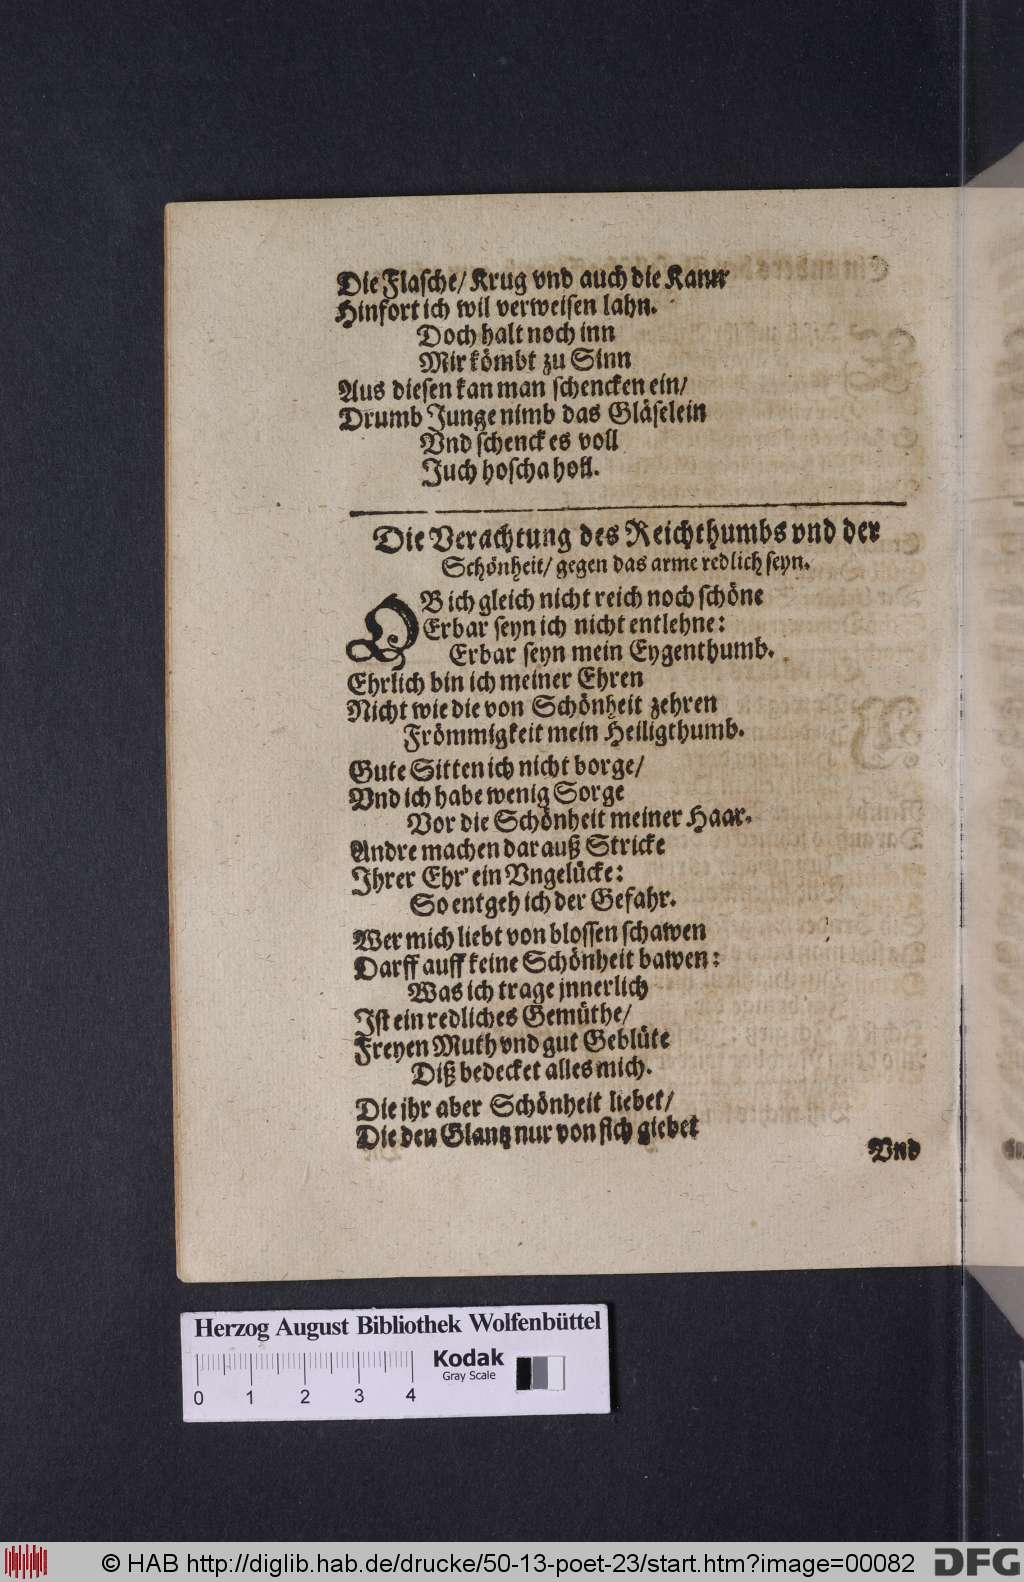 Die Flasche/ Krug vnd auch die Kann
Hinfort ich wil verweisen lahn.
Doch halt noch inn
Mir kömbt zu Sinn
Aus diesen kan man schencken ein/
Drumb Junge nimb das Gläselein
Vnd schenck es voll
Juch hoscha holl.
Die Verachtung des Reichthumbs vnd der
Schönheit/ gegen das arme redlich seyn.
OB ich gleich nicht reich noch schöne
Erbar seyn ich nicht entlehne:
Erbar seyn mein Eygenthumb.
Ehrlich bin ich meiner Ehren
Nicht wie die von Schönheit zehren
Frömmigkeit mein Heiligthumb.
Gute Sitten ich nicht borge/
Vnd ich habe wenig Sorge
Vor die Schönheit meiner Haar.
Andre machen darauß Stricke
Ihrer Ehr' ein Vngelücke:
So entgeh ich der Gefahr.
Wer mich liebt von blossen schawen
Darff auff keine Schönheit bawen:
Was ich trage jnnerlich
Ist ein redliches Gemüthe/
Freyen Muth vnd gut Geblüte
Diß bedecket alles mich.
Die jhr aber Schönheit liebet/
Die den Glantz nur von sich giebet
Vnd
Herzog August Bibliothek Wolfenbüttel
Kodak
Gray Scale
0 1 2 3 4
© HAB http://diglib.hab.de/drucke/50-13-poet-23/start.htm?image=00082
DFG